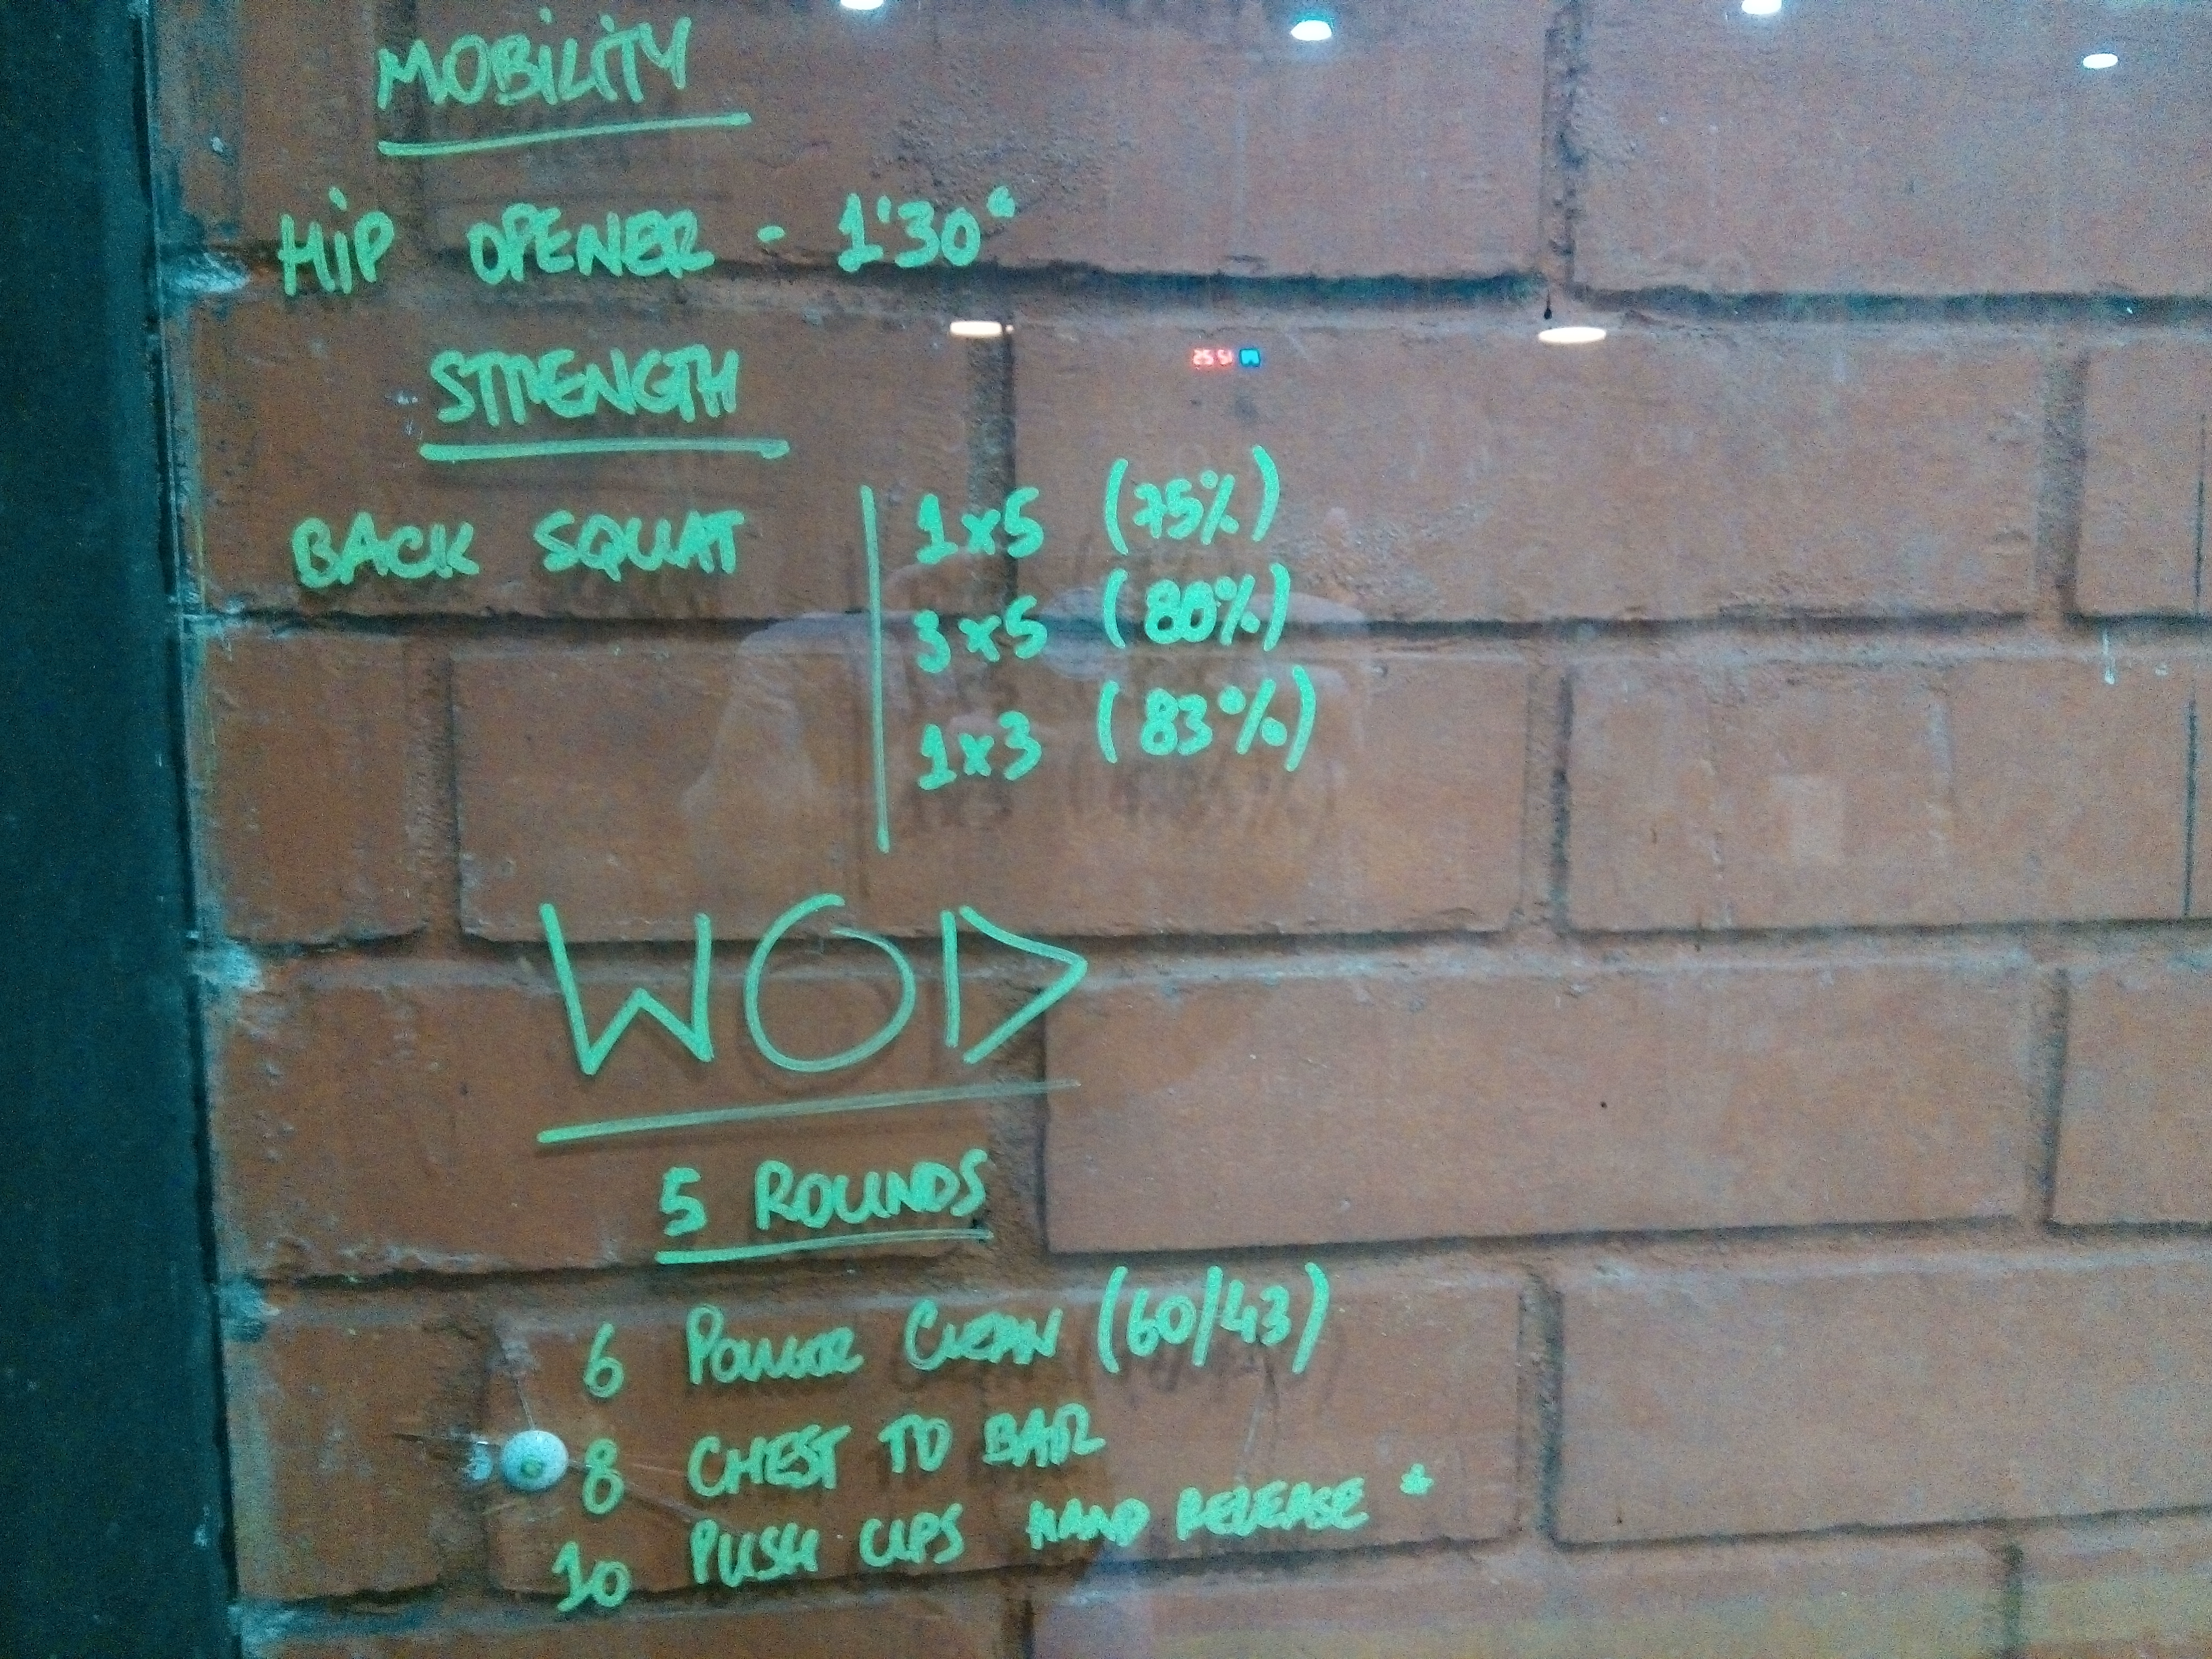 MOBILITY
HIP OPENER - 1'30"
STRENGTH
BACK SQUAT | 1x5 (75%)
3x5 (80%)
1x3 (83%)
WOD
5 ROUNDS
6 POWER CLEAN (60/43)
8 CHEST TO BAR
10 PUSH UPS HAND RELEASE *